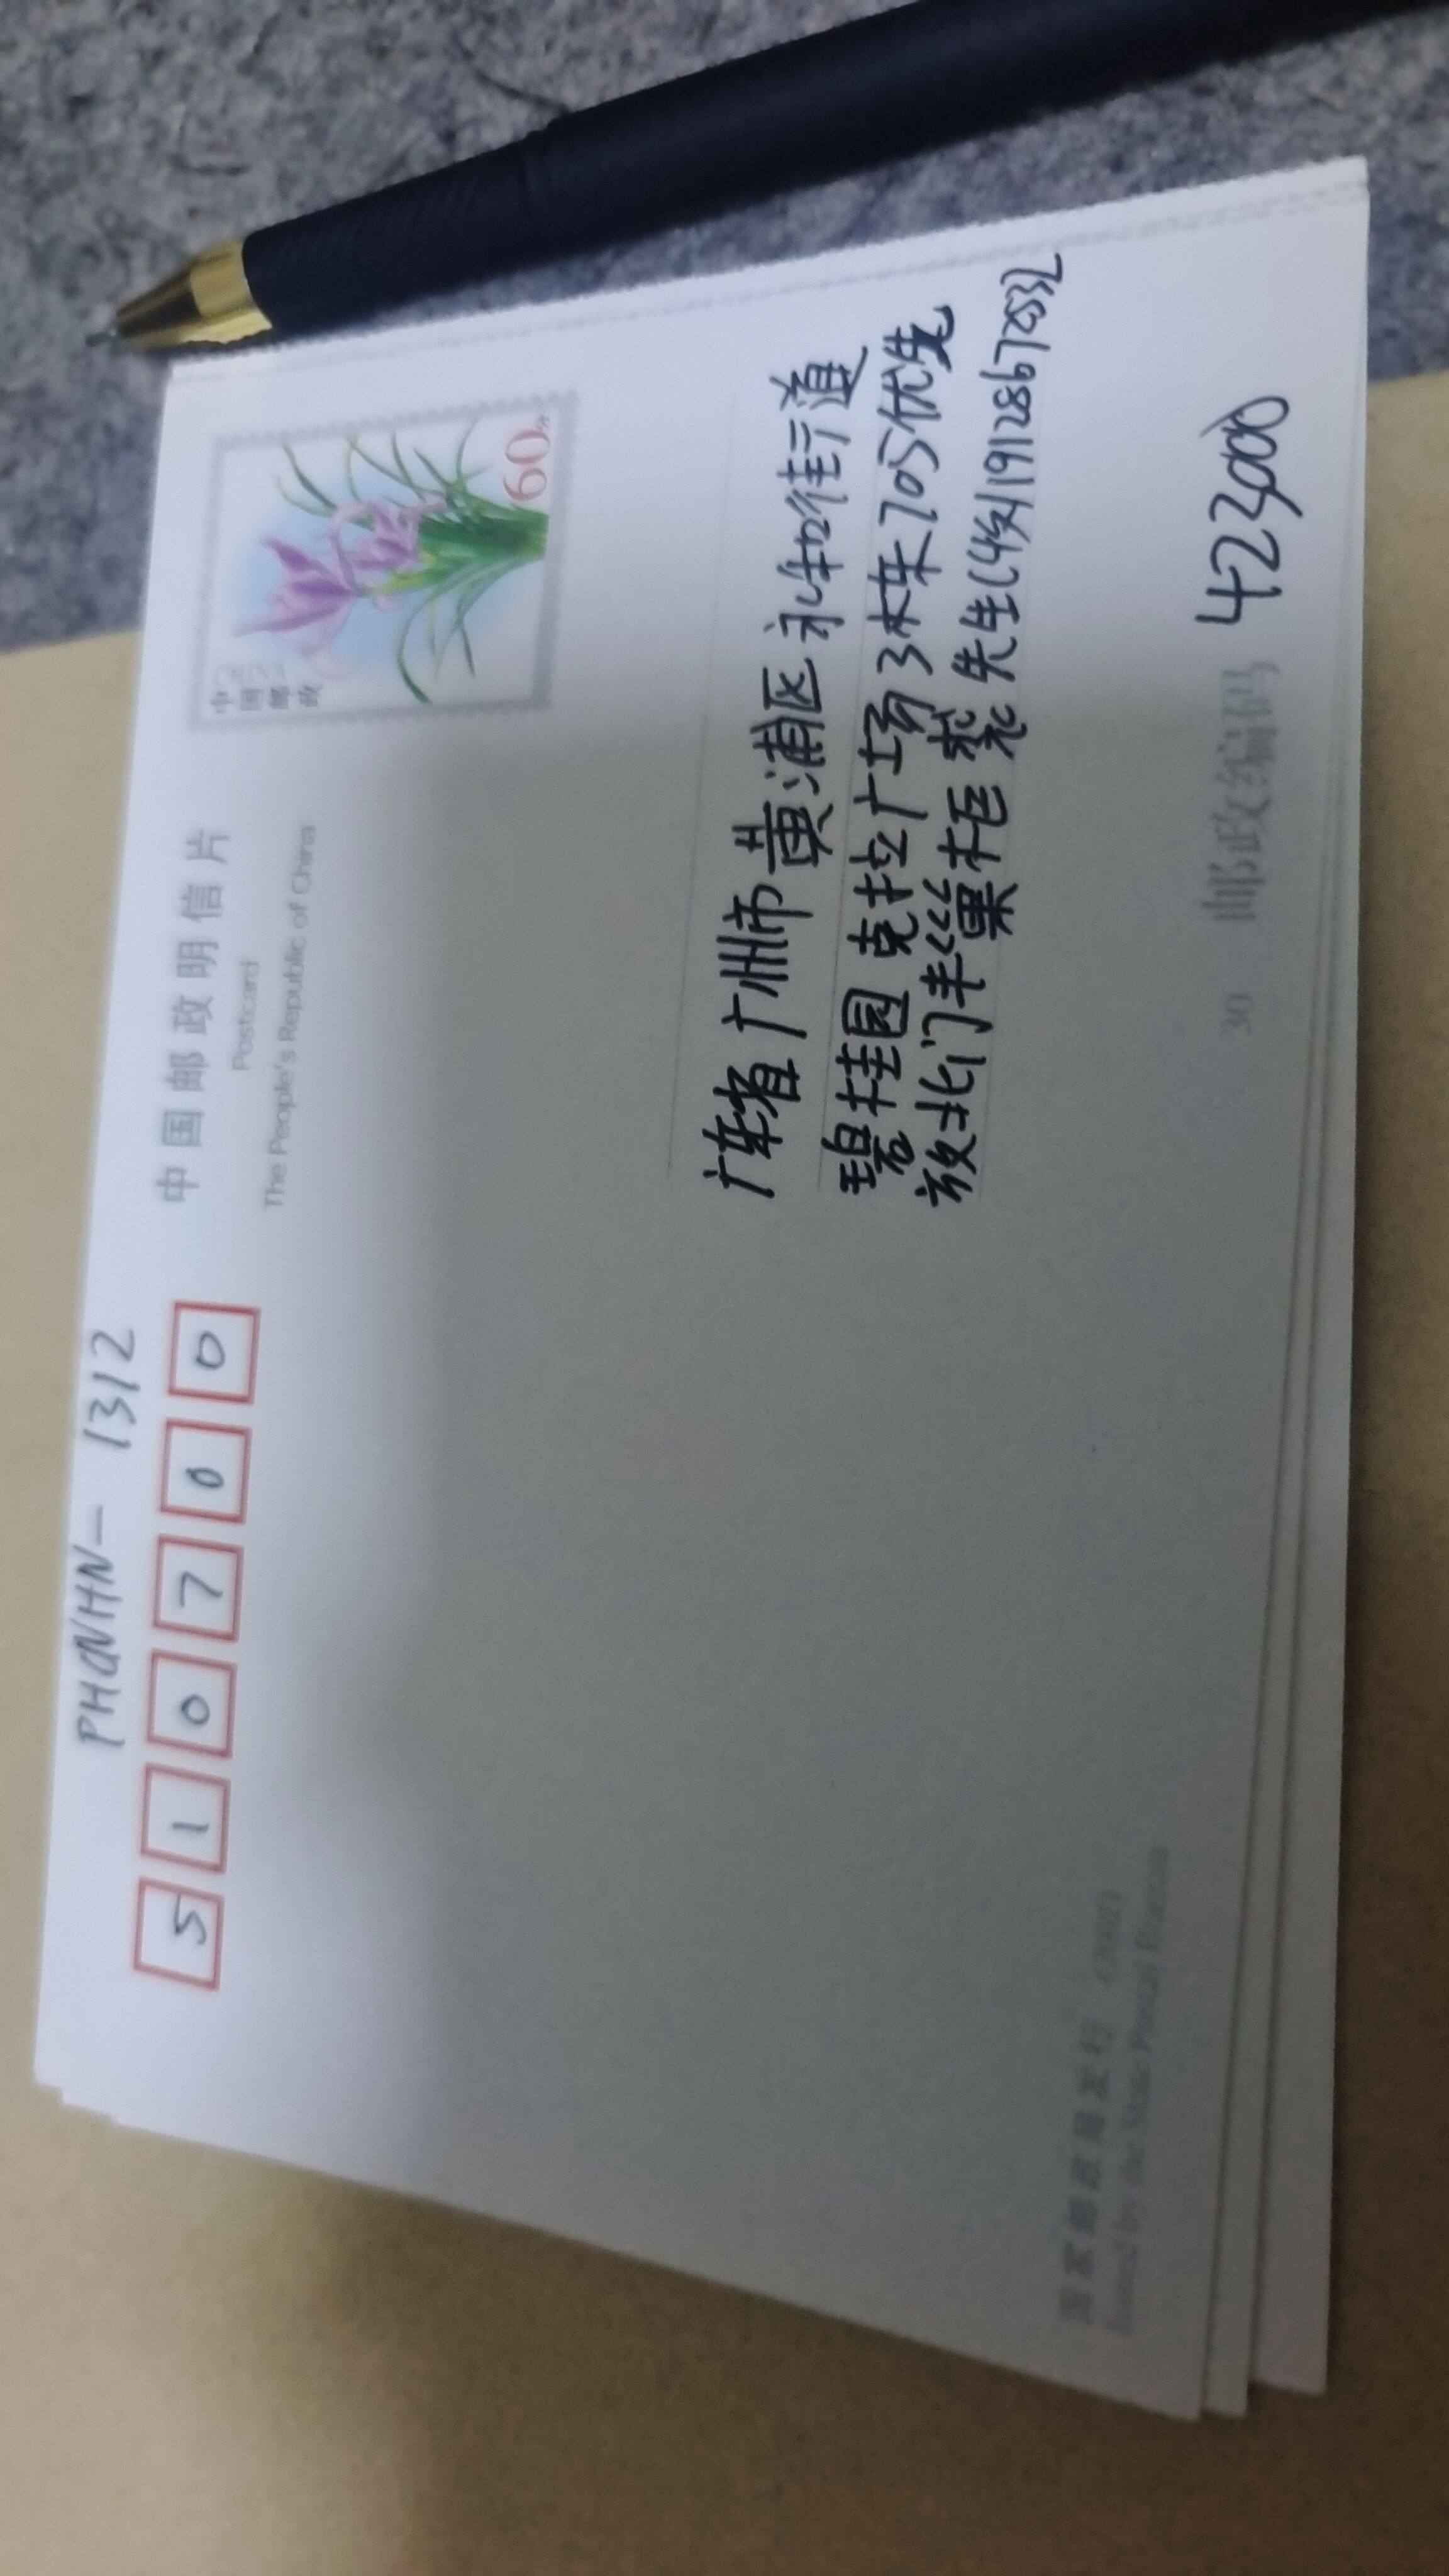 PHQVHN-1312
510700
中国邮政明信片
Postcard
The People's Republic of China
中国邮政
60分
广东省广州市黄浦区
碧桂园克拉广场3栋705优先
放北门丰巢柜 裘先生
30 邮政编码 421
国家邮政局发行 (2002)
Issued by the State Postal Bureau